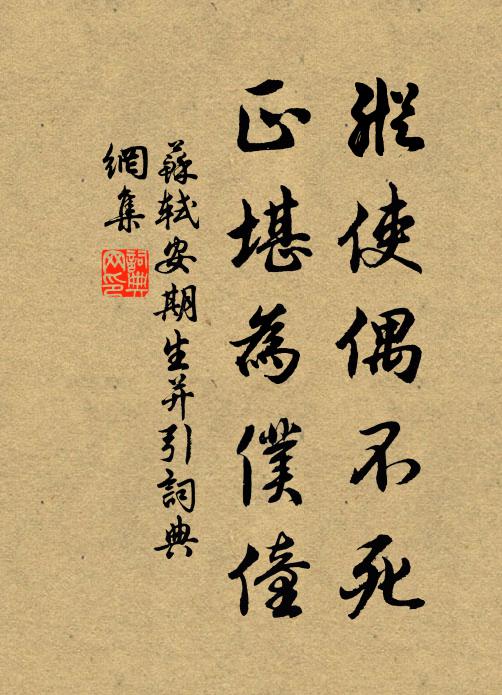 縱使偶不死
正堪為僕僮
蘇軾安期生并引詞典
網集
詞典網印